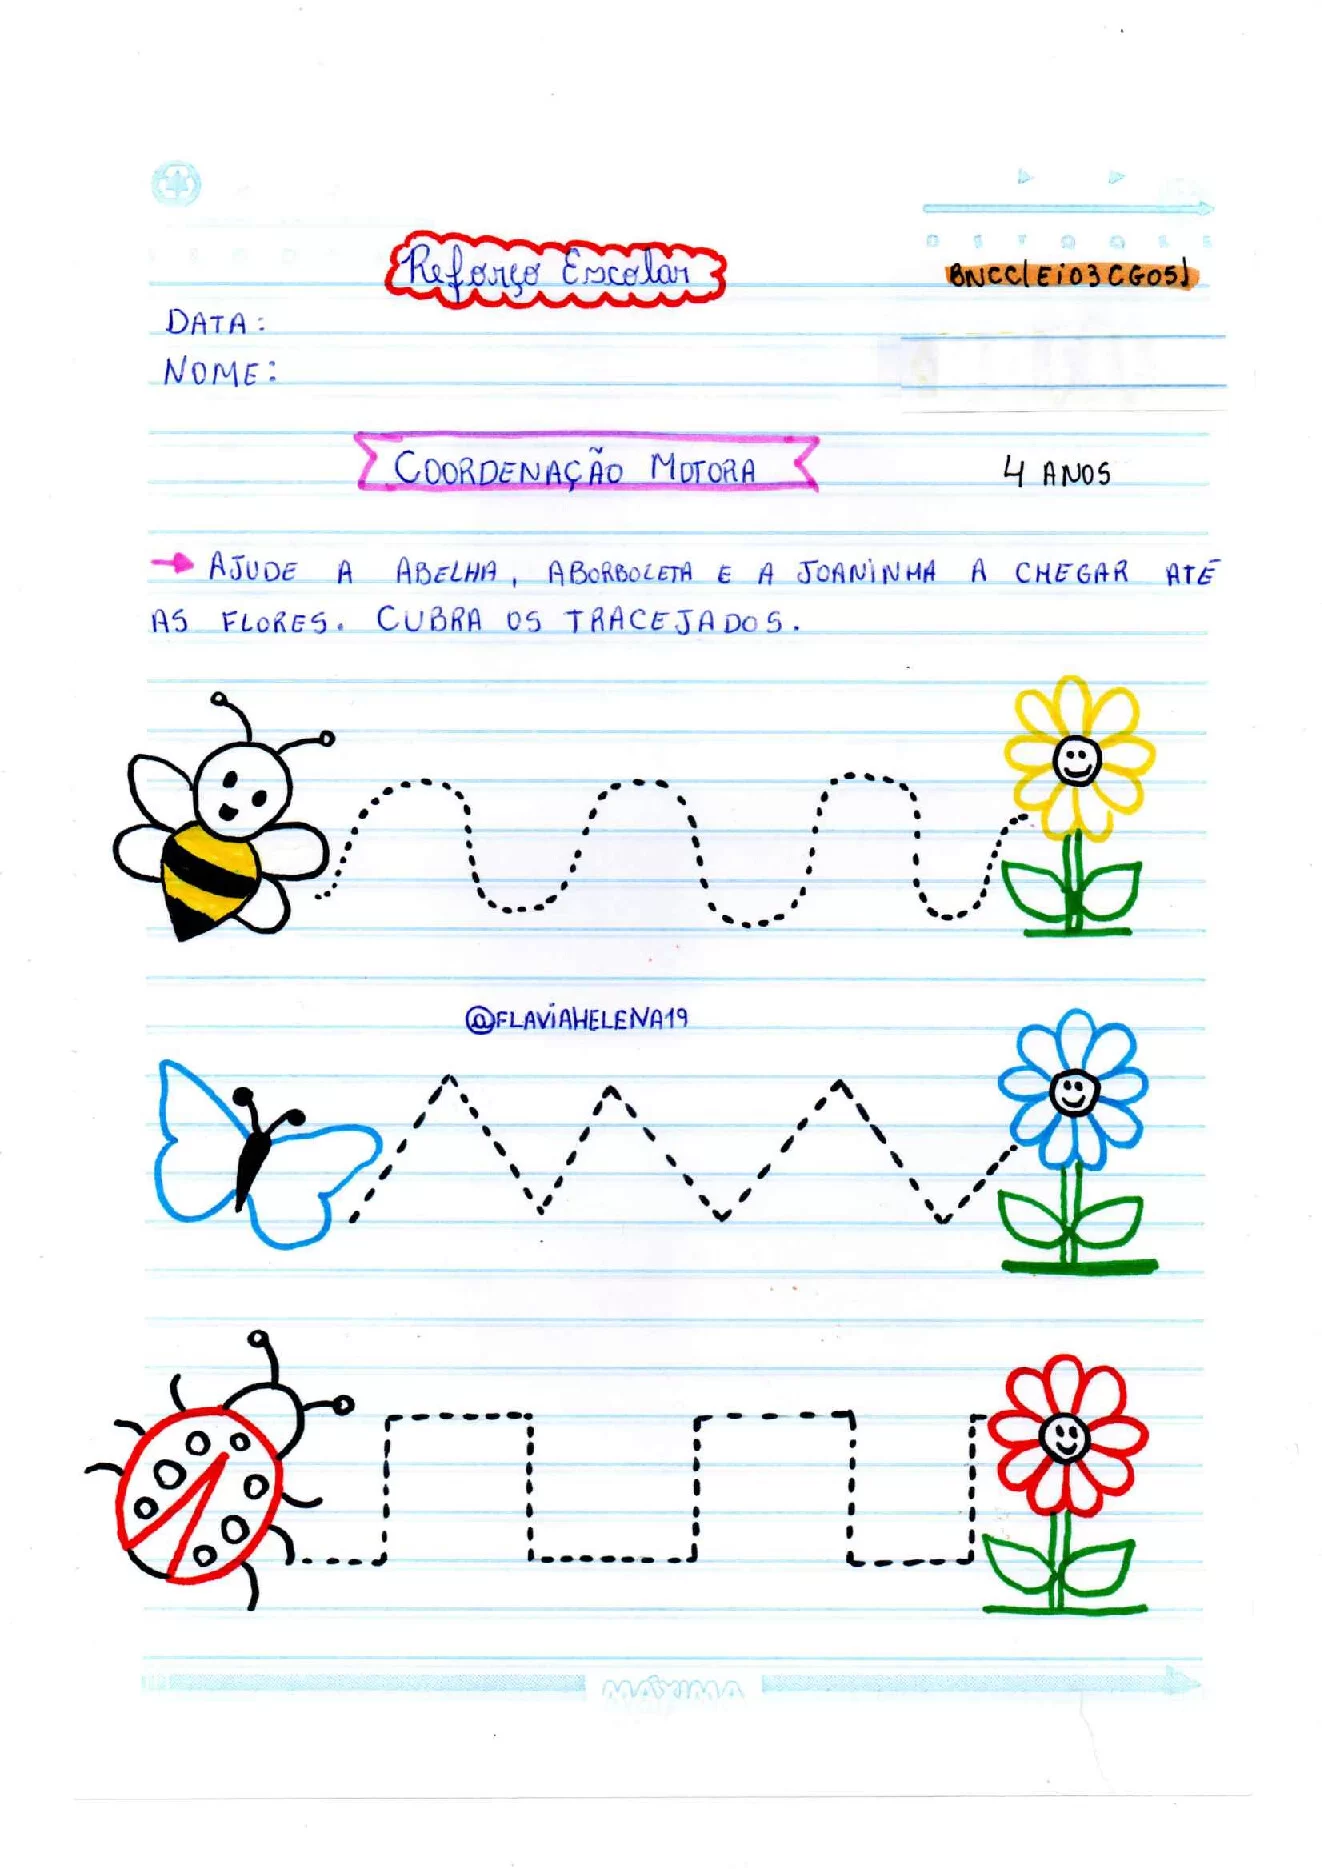 Reforço Escolar
BNCC(Ei03CG05)
DATA:
NOME:
COORDENAÇÃO MOTORA
4 ANOS
AJUDE A ABELHA, ABORBOLETA E A JOANINHA A CHEGAR ATÉ
AS FLORES. CUBRA OS TRACEJADOS.
@FLAViAHELENA19